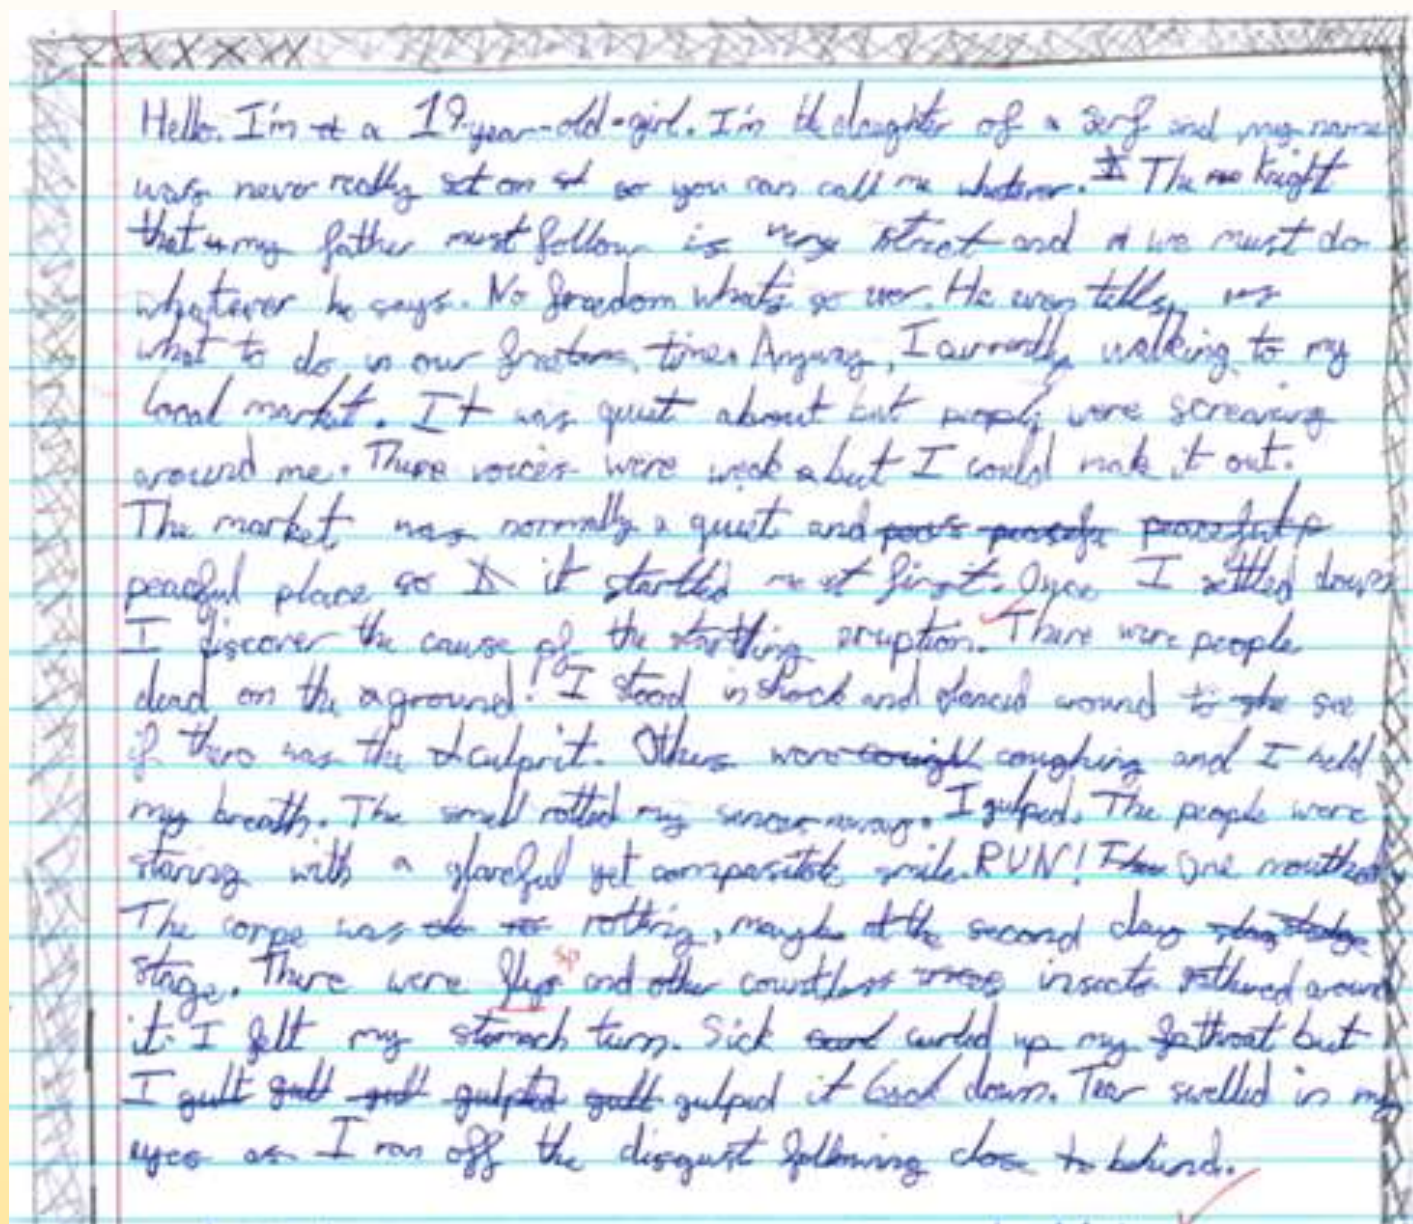 Hello. I'm a 19-year-old-girl. I'm the daughter of a serf and my name
was never really set on so you can call me whatever. The knight
that my father must follow is very streect and we must do
whatever he says. No freedom what's so ever. He even tells us
what to do in our time. Anyway, I currently walking to my
local market. It was quiet about but people were screaming
around me. There voices were weak but I could make it out.
The market was normally a quiet and
peaceful place so it startled me at first. Once I settled down
I discover the cause of the startling eruption. There were people
dead on the ground! I stood in shock and glanced around to see
if there was the culprit. Others were coughing and I held
my breath. The smell rotted my sences away. I gulped. The people were
staring with a glareful yet smile. RUN! One mouthed
The corpe was rotting, maybe at the second day
stage. There were flys and other countless insects gathered around
sp
it. I felt my stomach turn. Sick curled up my throat but
I gulped it back down. Tear swelled in my
eyes as I ran off the disgust following close behind.